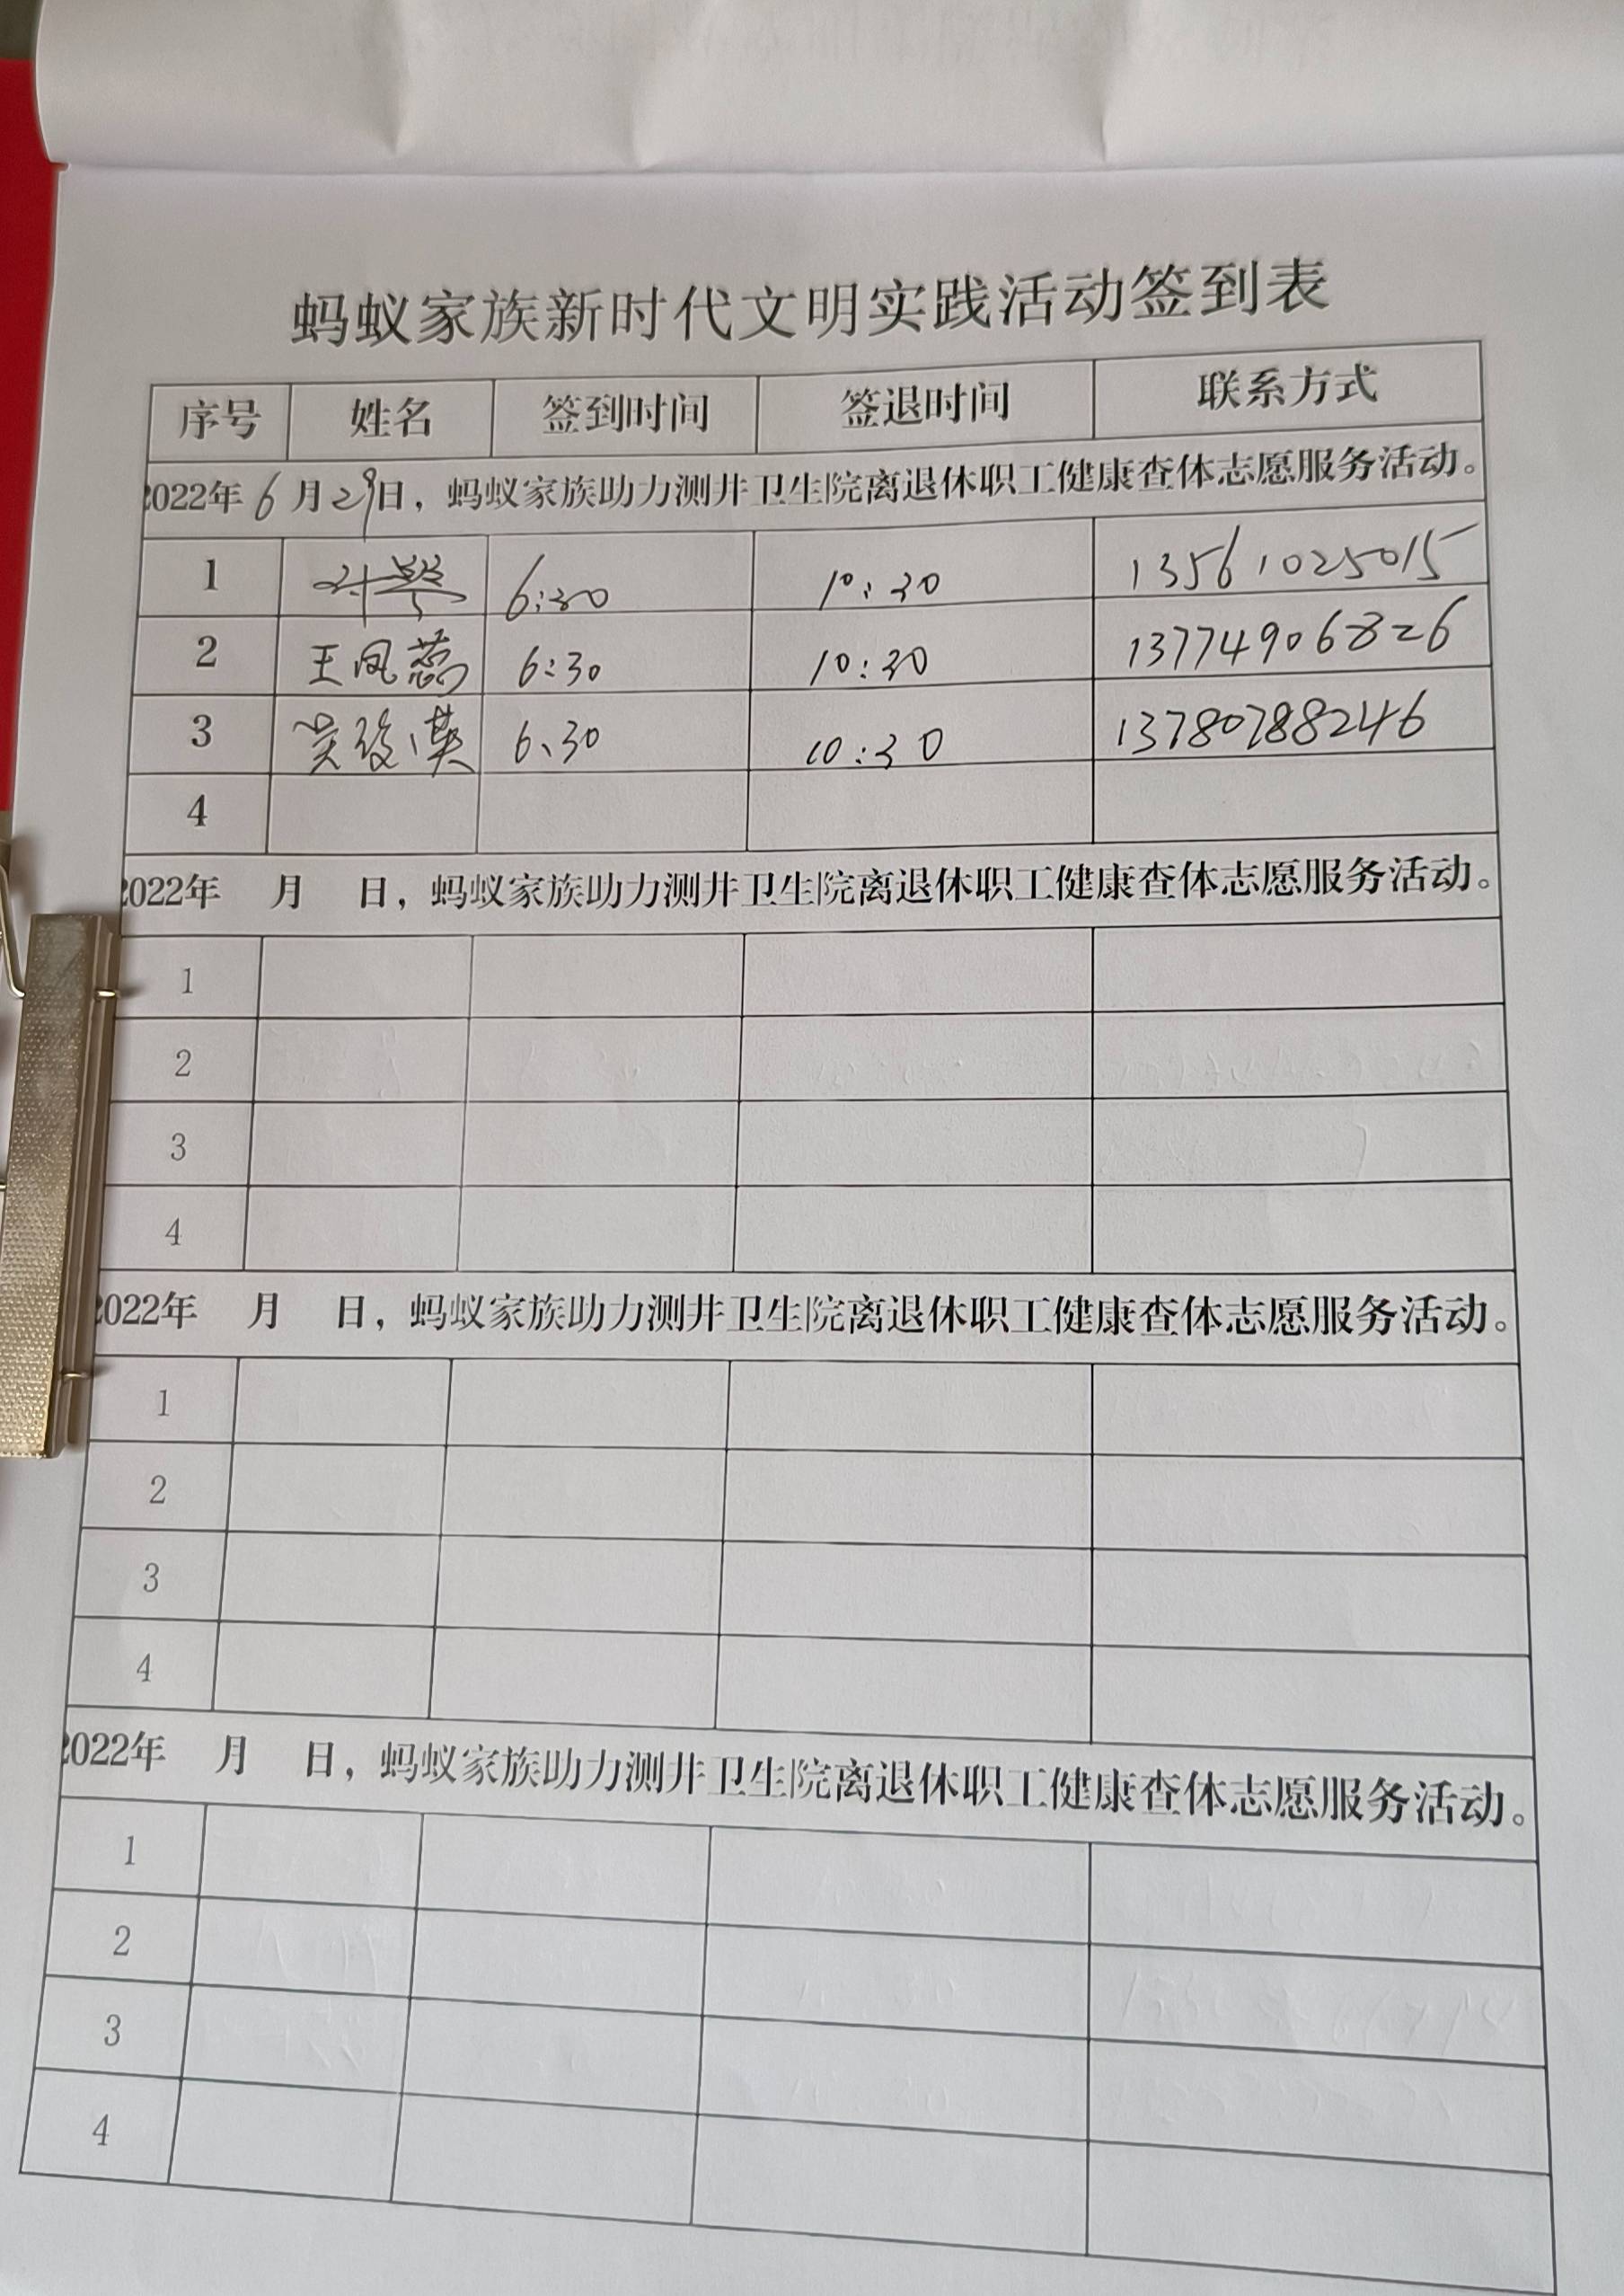 蚂蚁家族新时代文明实践活动签到表
序号 姓名 签到时间 签退时间 联系方式
2022年6月29日，蚂蚁家族助力测井卫生院离退休职工健康查体志愿服务活动。
1 6:30 10:30 13561025015
2 王凤蕊 6:30 10:30 13774906826
3 6、30 10:30 13780788246
4
2022年 月 日，蚂蚁家族助力测井卫生院离退休职工健康查体志愿服务活动。
1
2
3
4
2022年 月 日，蚂蚁家族助力测井卫生院离退休职工健康查体志愿服务活动。
1
2
3
4
2022年 月 日，蚂蚁家族助力测井卫生院离退休职工健康查体志愿服务活动。
1
2
3
4